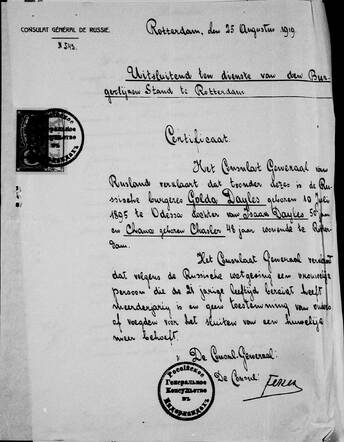 CONSULAT GÉNÉRAL DE RUSSIE.
N 545.
Rotterdam, den 25 Augustus 1919
Uitsluitend ten dienste van den Bur-
gerlijken Stand te Rotterdam.
Certificaat.
Het Consulaat Generaal van
Rusland verklaart dat toonder dezes is de Rus-
sische burgeres Golda Dayles geboren 10 Juli
1895 te Odessa dochter van Isaac Dayles 50 jaar
en Chana geboren Chasler 48 jaar wonende te Rotter-
dam.
Het Consulaat Generaal verklaart
dat volgens de Russische wetgeving een vrouwelijk
persoon die de 21 jarige leeftijd bereikt heeft
meerderjarig is en geen toestemming van ouders
of voogden vóór het sluiten van een huwelijk
meer behoeft.
De Consul-Generaal:
De Consul:
Россійское
Генеральное
Консульство
въ
Нидерландахъ